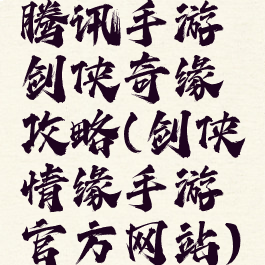 腾讯手游
剑侠奇缘
攻略(剑侠
情缘手游
官方网站)